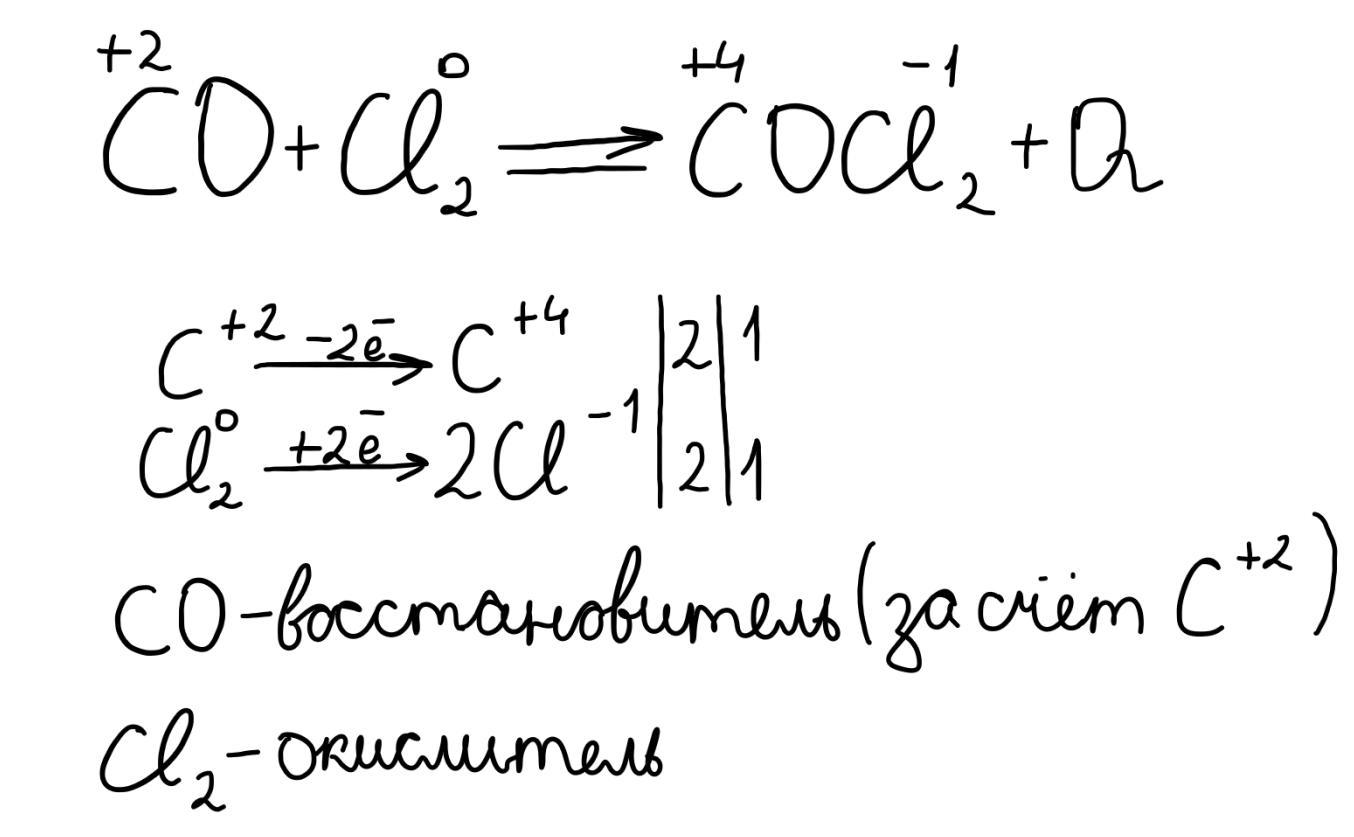 C⁺²O + Cl₂⁰ ⇌ C⁺⁴OCl₂⁻¹ + Q
C⁺² –2ē → C⁺⁴ | 2 | 1
Cl₂⁰ +2ē → 2Cl⁻¹ | 2 | 1
CO - восстановитель (за счёт C⁺²)
Cl₂ - окислитель